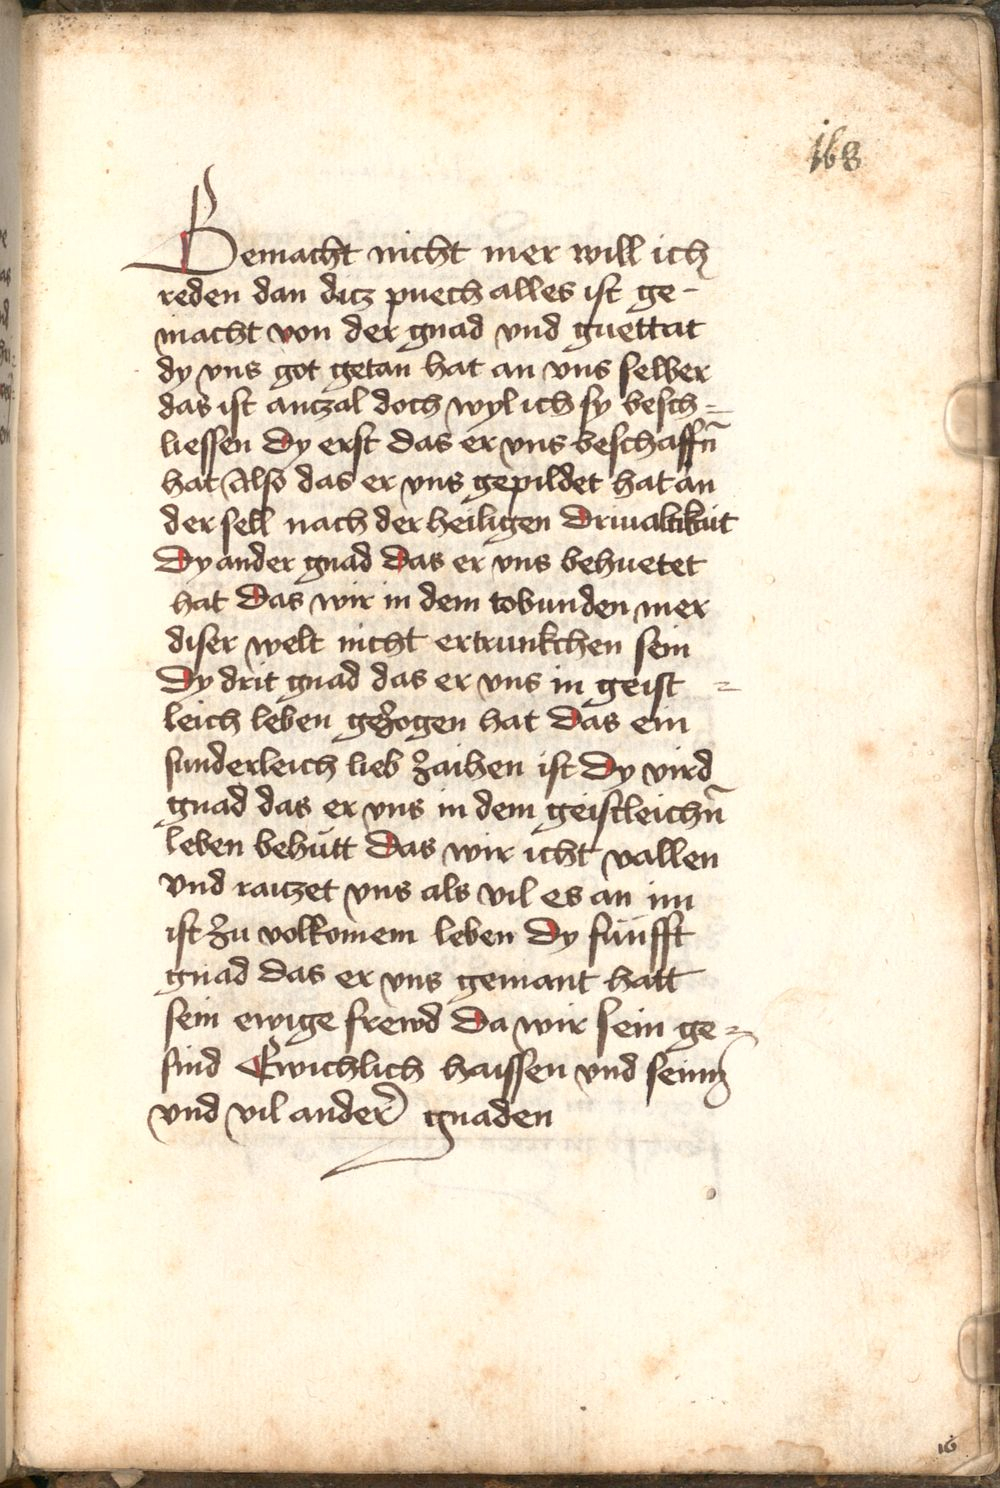 168
Gemacht nicht mer will ich
reden dan ditz puech alles ist ge-
macht von der gnad vnd guettat
dy vns got getan hat an vns selber
das ist antzal doch wyl ich sy besch=
liessen Dy erst das er vns beschaffn̄
hat Also das er vns gepildet hat an
der sell nach der heiligen Driualtikait
Dy ander gnad Das er vns behuetet
hat Das wir in dem tobunden mer
diser welt nicht ertrunkchen sein
Dy drit gnad das er vns in geist=
leich leben geczogen hat Das ein
sunderleich lieb zaihen ist Dy vird
gnad das er vns in dem geistleichn̄
leben behütt Das wir icht vallen
vnd raitzet vns als vil es an im
ist zu volkomem leben Dy fünfft
gnad das er vns gemant hatt
sein ewige frewd Da wir sein ge=
sind Ewichlich haissen vnd sein
vnd vil ander gnaden